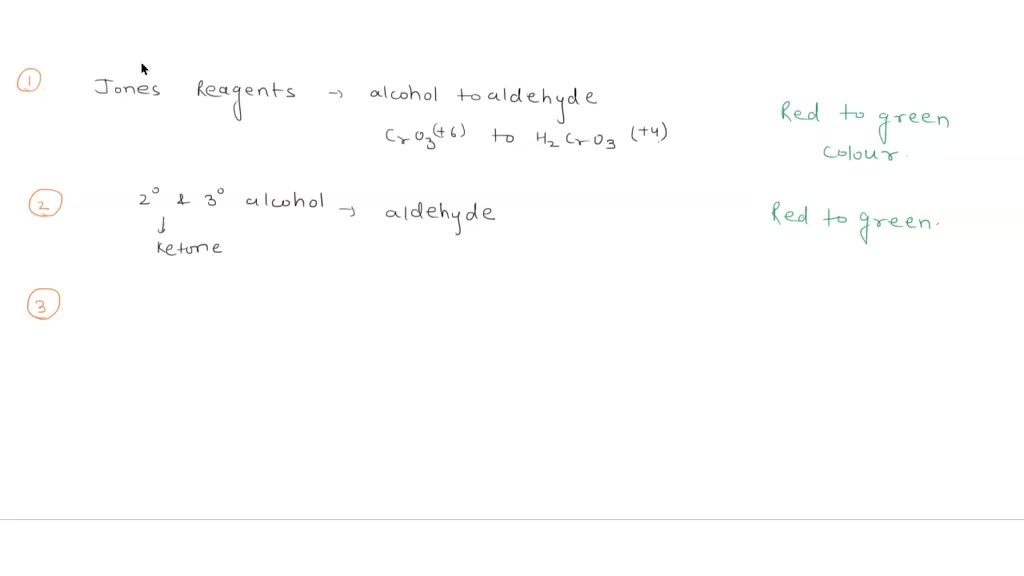 1 Jones Reagents → alcohol to aldehyde
CrO3(+6) to H2CrO3 (+4)
Red to green
colour.
2 2° & 3° alcohol → aldehyde
↓
Ketone
Red to green.
3